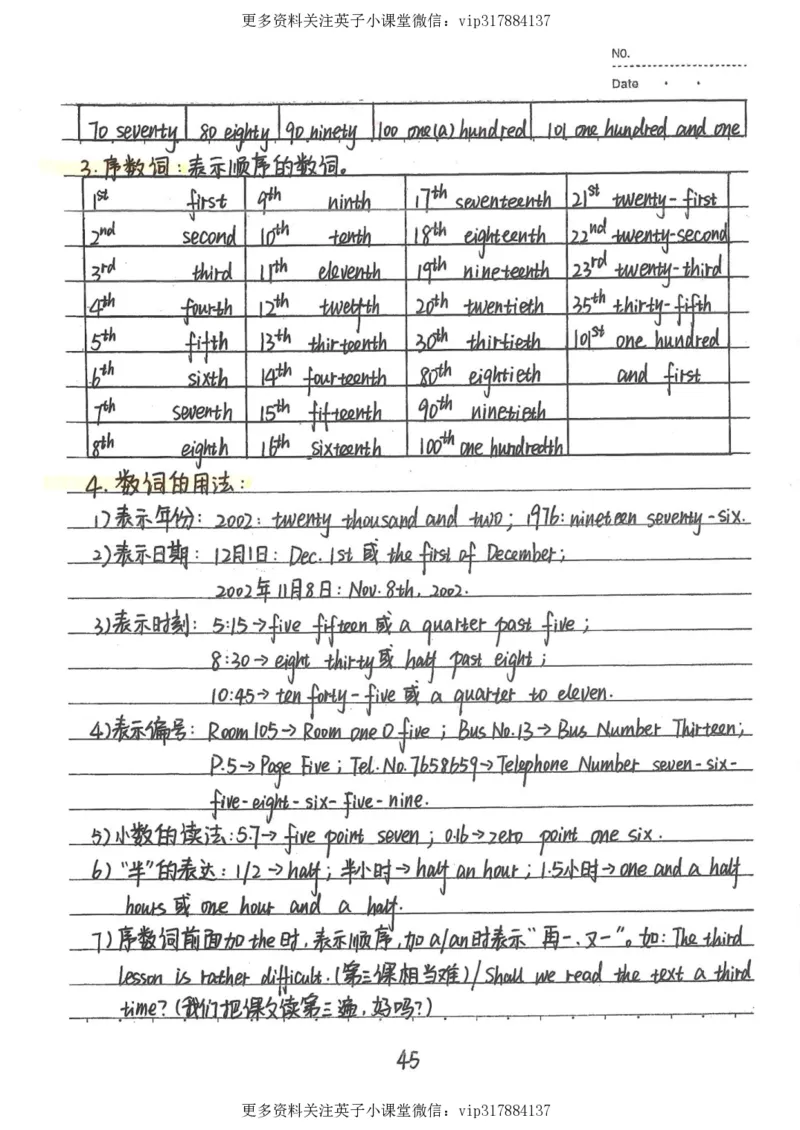 更多资料关注英子小课堂微信：vip317884137
NO.
Date
70 seventy 80 eighty 90 ninety 100 one(a) hundred 101 one hundred and one
3.序数词：表示顺序的数词。
1st first 9th ninth 17th seventeenth 21st twenty-first
2nd second 10th tenth 18th eighteenth 22nd twenty-second
3rd third 11th eleventh 19th nineteenth 23rd twenty-third
4th fourth 12th twelfth 20th twentieth 35th thirty-fifth
5th fifth 13th thirteenth 30th thirtieth 101st one hundred
6th sixth 14th fourteenth 80th eightieth and first
7th seventh 15th fifteenth 90th ninetieth
8th eighth 16th sixteenth 100th one hundredth
4.数词的用法：
1)表示年份：2002：twenty thousand and two；1976：nineteen seventy-six.
2)表示日期：12月1日：Dec.1st 或 the first of December；
2002年11月8日：Nov.8th，2002.
3)表示时刻：5:15→five fifteen 或 a quarter past five；
8:30→eight thirty 或 half past eight；
10:45→ten forty-five 或 a quarter to eleven.
4)表示编号：Room 105→Room one O five；Bus No.13→Bus Number Thirteen；
P.5→Page Five；Tel.No.7658659→Telephone Number seven-six-
five-eight-six-five-nine.
5)小数的读法：5.7→five point seven；0.16→zero point one six.
6)“半”的表达：1/2→half；半小时→half an hour；1.5小时→one and a half
hours 或 one hour and a half.
7)序数词前面加the时，表示顺序，加a/an时表示“再一、又一”。如：The third
lesson is rather difficult.(第三课相当难)/Shall we read the text a third
time?(我们把课文读第三遍，好吗?)
45
更多资料关注英子小课堂微信：vip317884137